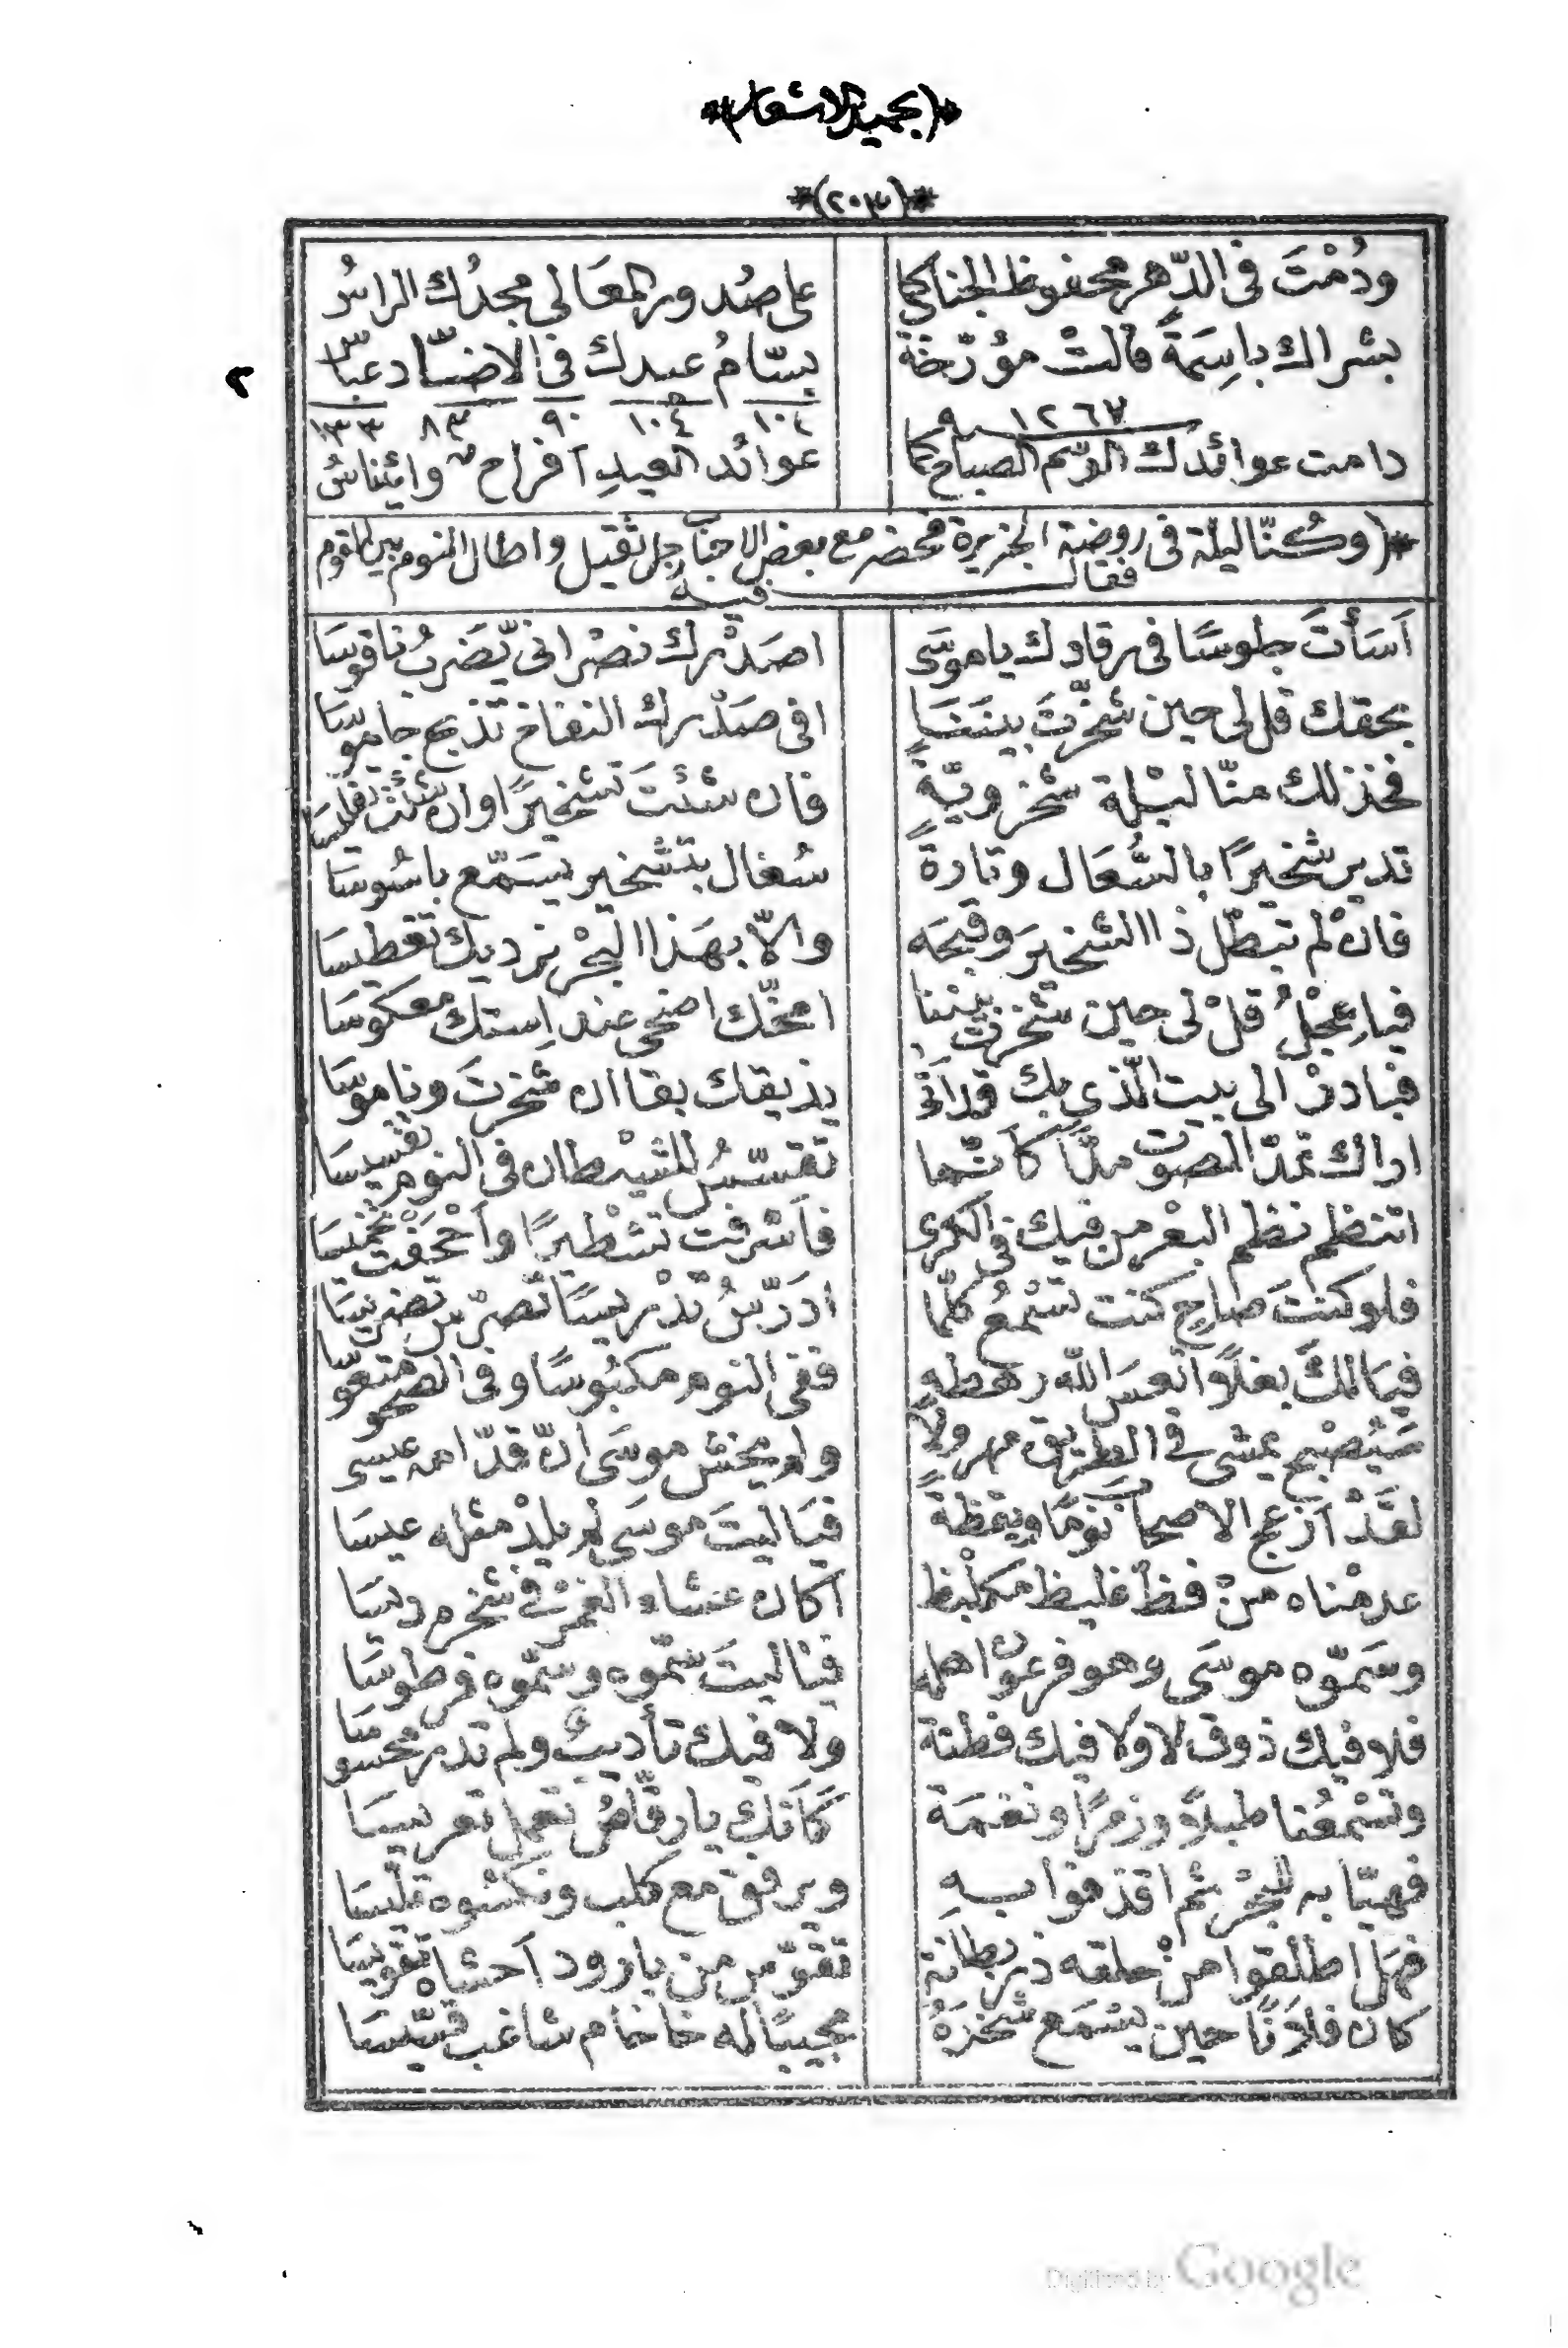 *(بحميد الاشعار)*
*(٢٠٣)*
ودُمْتَ فى الدّهر محفوظ الجناب كما على صُدور المعَالى مجدُك الراسُ
بشراك باسِمَةً قالتْ مؤرّخة بسّامُ عيدك فى الاضـّاد عبّاس
٢
١٢٦٧ ١٠٤ ١٠٤ ٩٠ ٨٣ ١٣٣
دامت عوائدك الوسم الصباح كما عوائد العيدِ آفراح وايْناسُ
*(وكُنّا ليلة فى روضة الجزيرة فحضر مع بعض الاحباب رجل ثقيل واطال النوم بين القوم
فقالــــ فيــه
اَسَأتَ جلوسًا فى رقادك ياموسَى اصَدْرك نصْرانىّ يَضربُ ناقوسَا
بحقك قل لى حين شخّرْتَ بينَنَا افى صَدْرك النفاخ تذبح جاموسَا
فخذ لك منّا ليْلة شخرويّةً فان شئتَ تشْخيرًا وان شئت تفليسَا
تدير شخيرًا بالسُّعَال وتارةً سُعال بتشخير يسَمّع باسُوسَا
فان لم تبطّل ذا الشخيرَ وقبحَه والاّ بهَذا البحْر نرديك تغطيسَا
فيا عِجْلُ قلْ لى حين شخرتَ بيننا امخّك اضحى عند اِستك معكوسَا
فبادرْ الى بيت الّذى بك قد اَتى يذيقك بقا ان شخرتَ وناموسَا
اراك تمدّ الصوْت مدًّا كأنّما تقسّسُ للشيْطان فى النوم تقسيسَا
اتنظم نظم البعْر من فيك فى الكرى فاَسْرفت تشْطيرًا واَجْحَفْتَ تخميسَا
فلو كنتَ صاحٍ كنت تسْمعُ كلّما ادَرّسُ تدْريسًا تضرّس تضريسَا
فيَالكَ بغلاً اتعسَ الله رهطه ففى النوم مكبُوسًا وفى الصحو متعوسَّا
سَيُصْبح يمشى فى الطريق مهرولاً ولم يخش موسَى انّ قدّامه عيسى
لقَدْ اَزعج الاصحابَ نومًا ويقظةً فيَاليتَ موسَى لم يلدْ مثله عيسَا
عدمْناه منْ فظٍّ غليظ مكلْبظ
وسَمّوه موسَى وهو فرعون اهله فيَاليتَ سَمّوه وسمّوه فرطوسَا
فلا فيك ذوق لا ولا فيك فطنة ولا فيك تأديبٌ ولم تدر محسُوسَا
وتسْمعُنا طبلاً وزمرًا ونغمَة كَأنّك يا رقّاصُ تعمل تعريسَا
فهيّا به للبحْر ثم اقذفوا بــهِ ويرفق مع كلب ونكسُوه قلّيسَا
فهل اطلقوا منْ حلقه ذى بطانةٍ تقوّس من بارود اَحشاه تقويسَا
كان فلاَنًا حين يسْمَع شخرَهُ مجيبًا له خاخام شاغب قسّيسَا
Digitized by Google